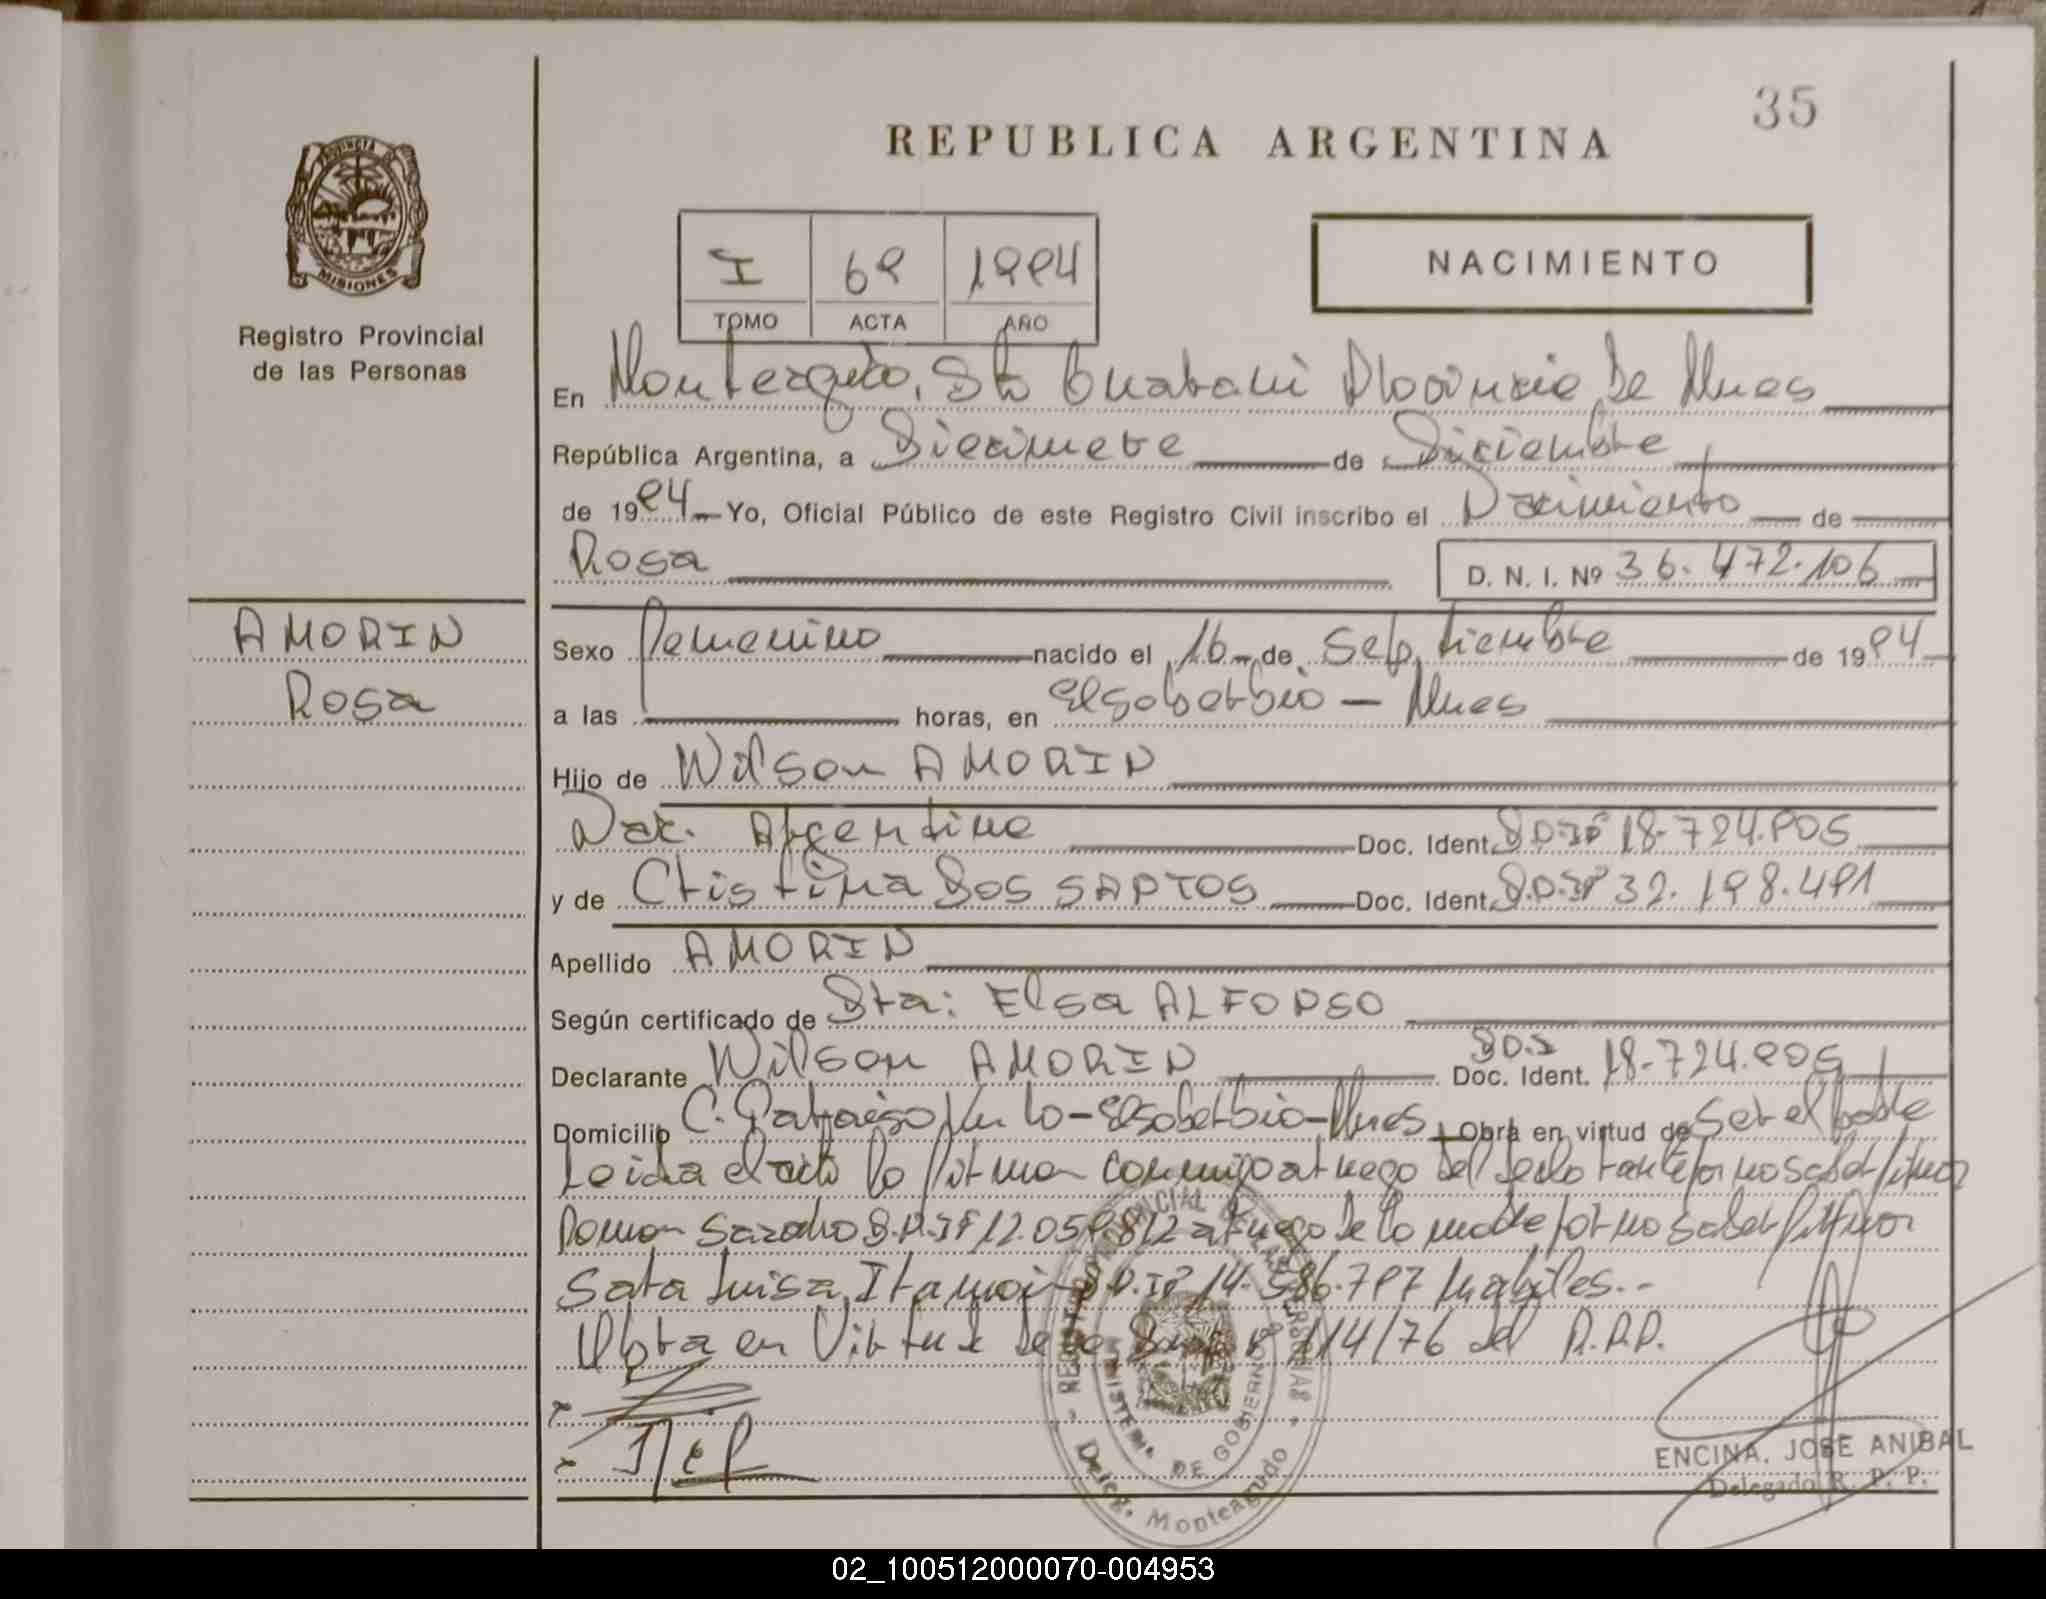 35
REPUBLICA ARGENTINA
PROVINCIA DE
MISIONES
Registro Provincial
de las Personas
I 69 1994
TOMO ACTA AÑO
NACIMIENTO
En Monteagudo, Dto Guarani Provincia De Mnes
República Argentina, a Diecinueve de Diciembre
de 1994 Yo, Oficial Público de este Registro Civil inscribo el Nacimiento de
Rosa D. N. I. Nº 36.472.106
AMORIN
Rosa
Sexo Femenino nacido el 16 de Septiembre de 1994
a las horas, en El Soberbio - Mnes
Hijo de Wilson AMORIN
Nac. Argentino Doc. Ident. D.N.Iº 18.724.905
y de Cristina Dos SANTOS Doc. Ident. D.N.Iº 32.198.491
Apellido AMORIN
Según certificado de Sta: Elsa ALFONSO
Declarante Wilson AMORIN Doc. Ident. D.N.I 18.724.905
Domicilio C. Paraiso Km 10 - El Soberbio - Mnes Obra en virtud de Ser el padre
Leida el acta la firman conmigo a ruego del declarante por no saber firmar
Ramon D.N.Iº 12.059.812 a ruego de la madre por no saber firmar
Sara Luisa D.N.Iº 14.586.797 habiles.-
Obra en Virtud de la 114/76 del R.P.P.
REGISTRO PROVINCIAL DE LAS PERSONAS
MINISTERIO DE GOBIERNO
Deleg. Monteagudo
ENCINA, JOSE ANIBAL
Delegado R. P. P.
02_100512000070-004953